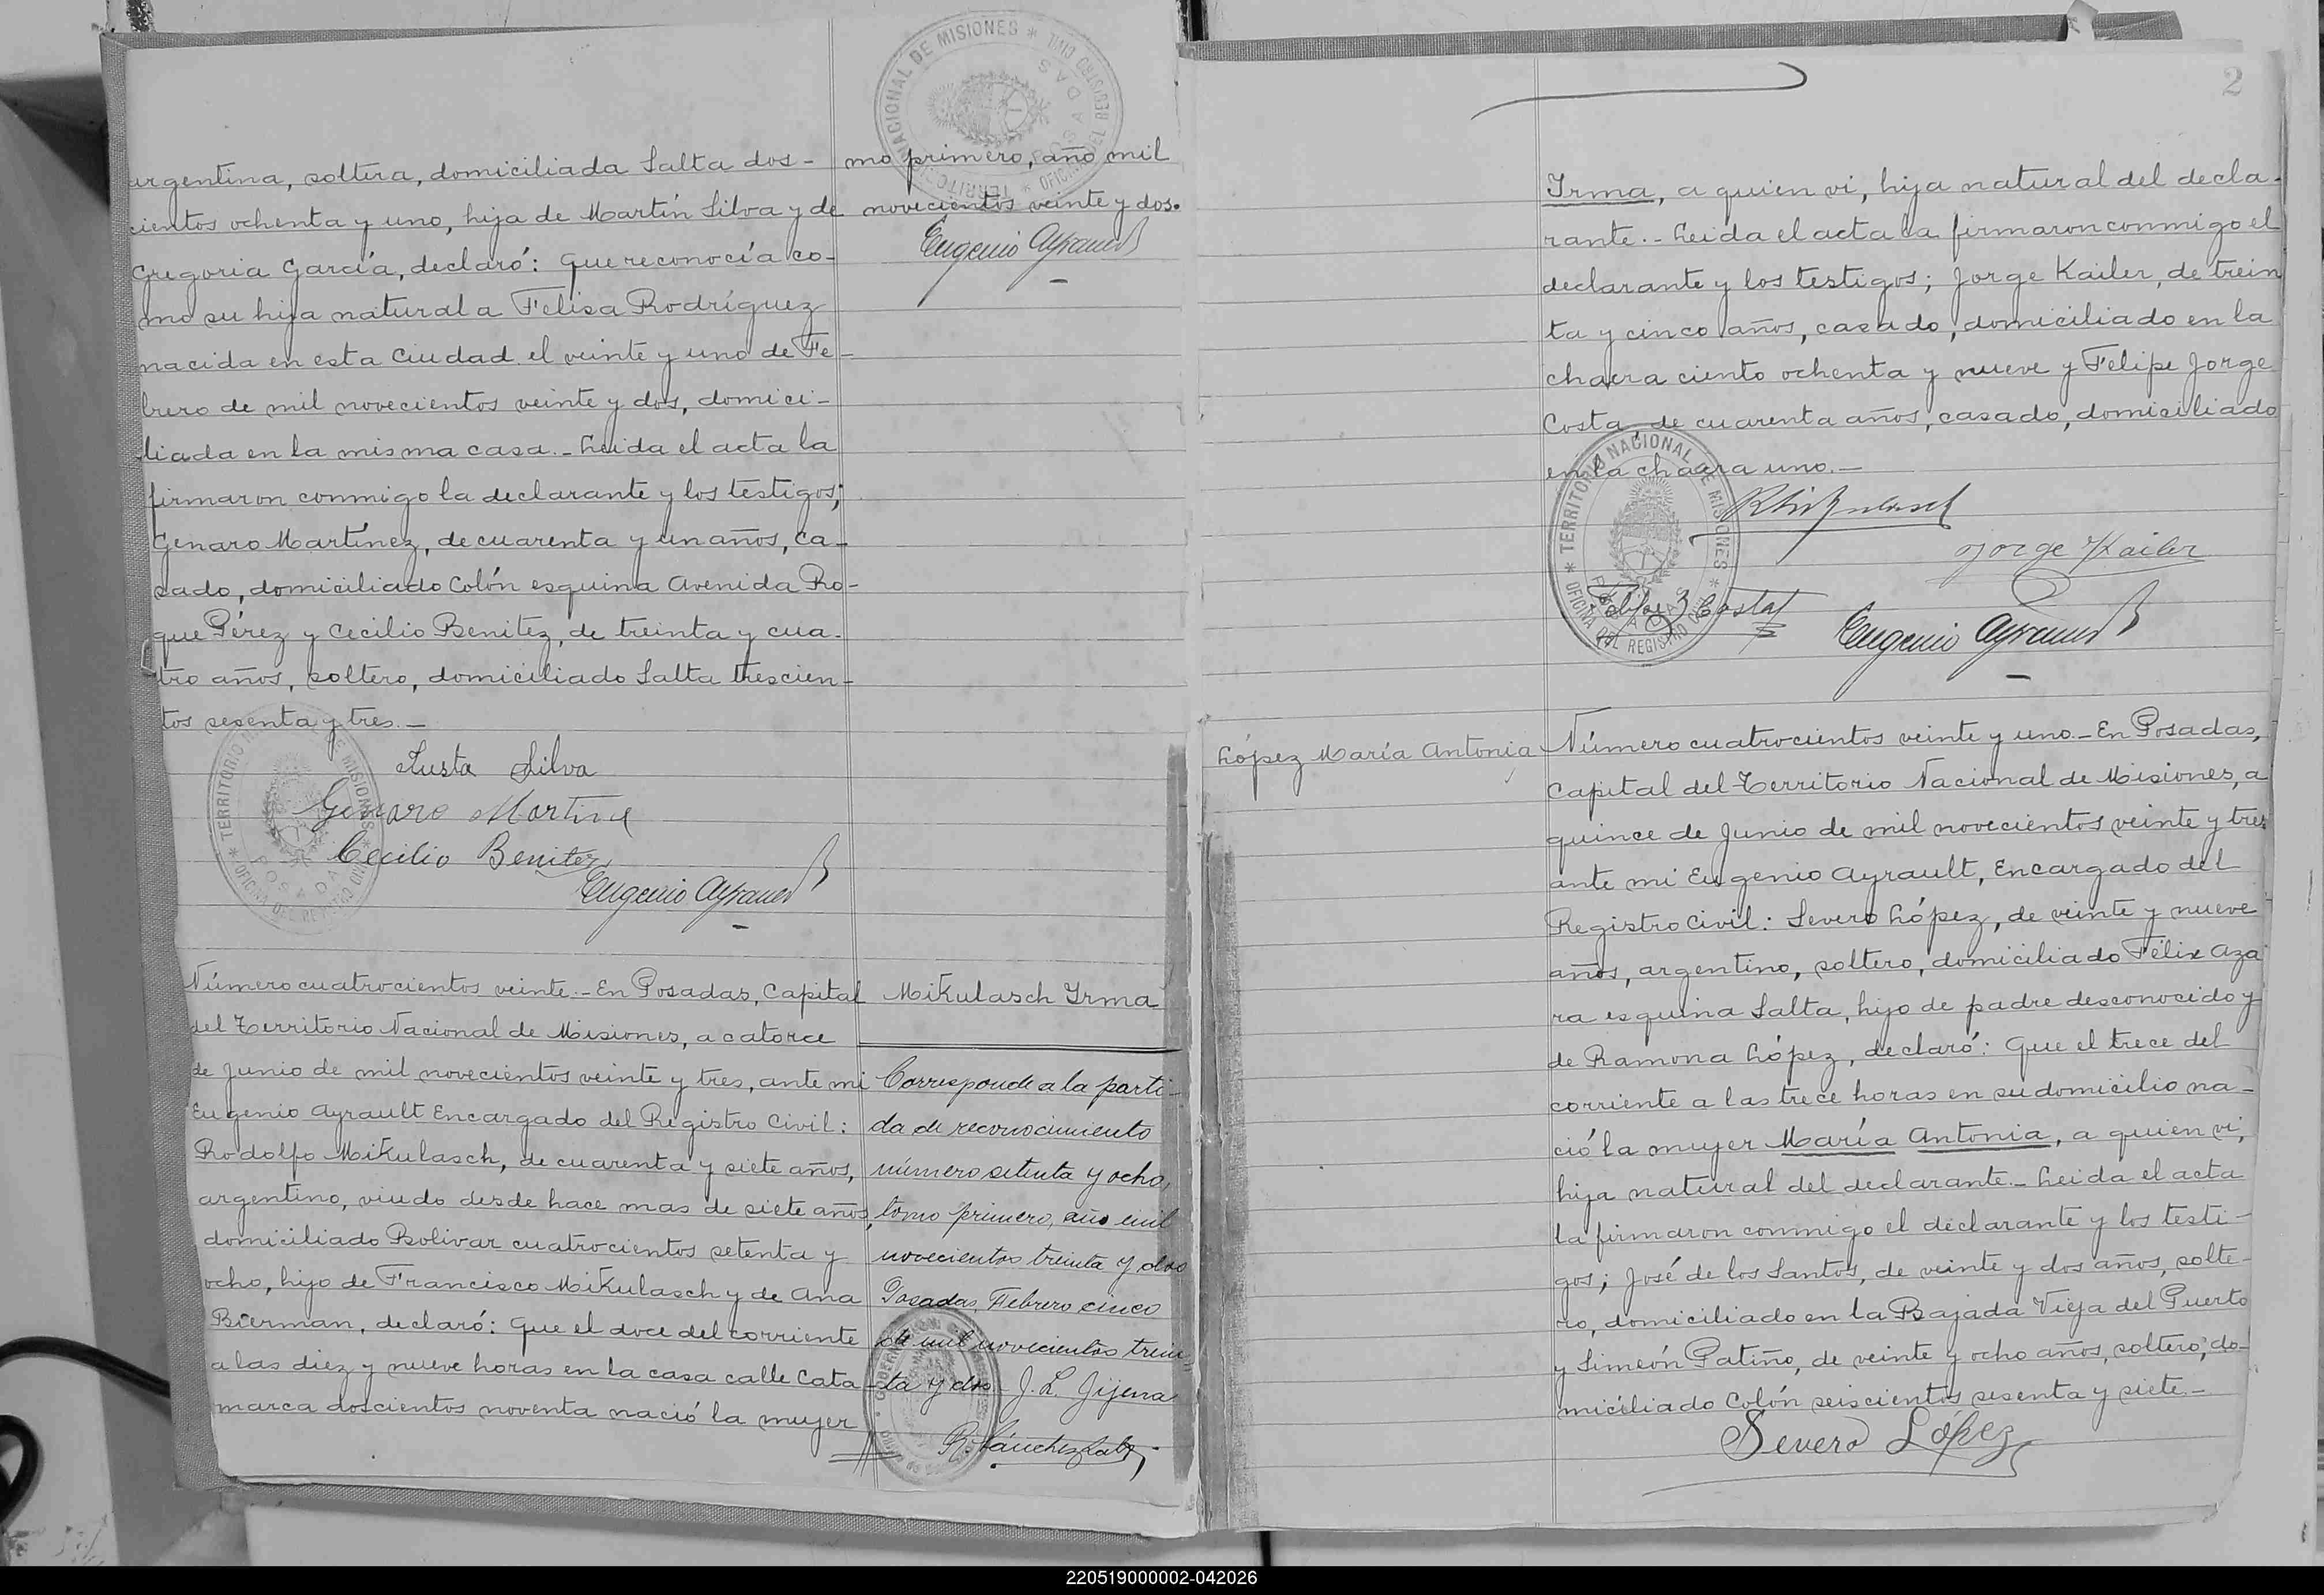 argentina, soltera, domiciliada Salta dos-
cientos ochenta y uno, hija de Martín Silva y de
Gregoria García, declaró: Que reconocía co-
mo su hija natural a Felisa Rodríguez
nacida en esta Ciudad el veinte y uno de Fe-
brero de mil novecientos veinte y dos, domici-
liada en la misma casa.- Leida el acta la
firmaron conmigo la declarante y los testigos;
Genaro Martínez, de cuarenta y un años, ca-
sado, domiciliado Colón esquina Avenida Ro-
que Pérez y Cecilio Benitez, de treinta y cua-
tro años, soltero, domiciliado Salta trescien-
tos sesenta y tres.-
Justa Silva
Genaro Martinez
Cecilio Benitez
Eugenio Ayrault
TERRITORIO NACIONAL DE MISIONES * OFICINA DEL REGISTRO CIVIL *
POSADAS
mo primero, año mil
novecientos veinte y dos.
Eugenio Ayrault
TERRITORIO NACIONAL DE MISIONES * OFICINA DEL REGISTRO CIVIL *
POSADAS
Número cuatrocientos veinte.- En Posadas, Capital
del Territorio Nacional de Misiones, a catorce
de Junio de mil novecientos veinte y tres, ante mi
Eugenio Ayrault Encargado del Registro Civil:
Rodolfo Mikulasch, de cuarenta y siete años,
argentino, viudo desde hace mas de siete años,
domiciliado Bolivar cuatrocientos setenta y
ocho, hijo de Francisco Mikulasch y de Ana
Bierman, declaró: Que el doce del corriente
a las diez y nueve horas en la casa calle Cata-
marca doscientos noventa nació la mujer
Mikulasch Irma
Corresponde a la parti-
da de reconocimiento
número setenta y ocho,
tomo primero, año mil
novecientos treinta y dos
Posadas, Febrero cinco
de mil novecientos trein-
ta y dos - J. L. Jijena
R. Sánchez
2
Irma, a quien vi, hija natural del decla-
rante.- Leida el acta la firmaron conmigo el
declarante y los testigos; Jorge Kailer, de trein
ta y cinco años, casado, domiciliado en la
chacra ciento ochenta y nueve y Felipe Jorge
Costa, de cuarenta años, casado, domiciliado
en la chacra uno.-
RMikulasch
Jorge Kailer
Felipe J Costa
Eugenio Ayrault
TERRITORIO NACIONAL DE MISIONES * OFICINA DEL REGISTRO CIVIL *
POSADAS
López María Antonia
Número cuatrocientos veinte y uno.- En Posadas,
Capital del Territorio Nacional de Misiones, a
quince de Junio de mil novecientos veinte y tres
ante mi Eugenio Ayrault, Encargado del
Registro Civil: Severo López, de veinte y nueve
años, argentino, soltero, domiciliado Félix Aza
ra esquina Salta, hijo de padre desconocido y
de Ramona López, declaró: Que el trece del
corriente a las trece horas en su domicilio na-
ció la mujer María Antonia, a quien vi,
hija natural del declarante.- Leida el acta
la firmaron conmigo el declarante y los testi-
gos; José de los Santos, de veinte y dos años, solte-
ro, domiciliado en la Bajada Vieja del Puerto
y Simeón Patiño, de veinte y ocho años, soltero, do-
miciliado Colón seiscientos sesenta y siete.-
Severo López
220519000002-042026